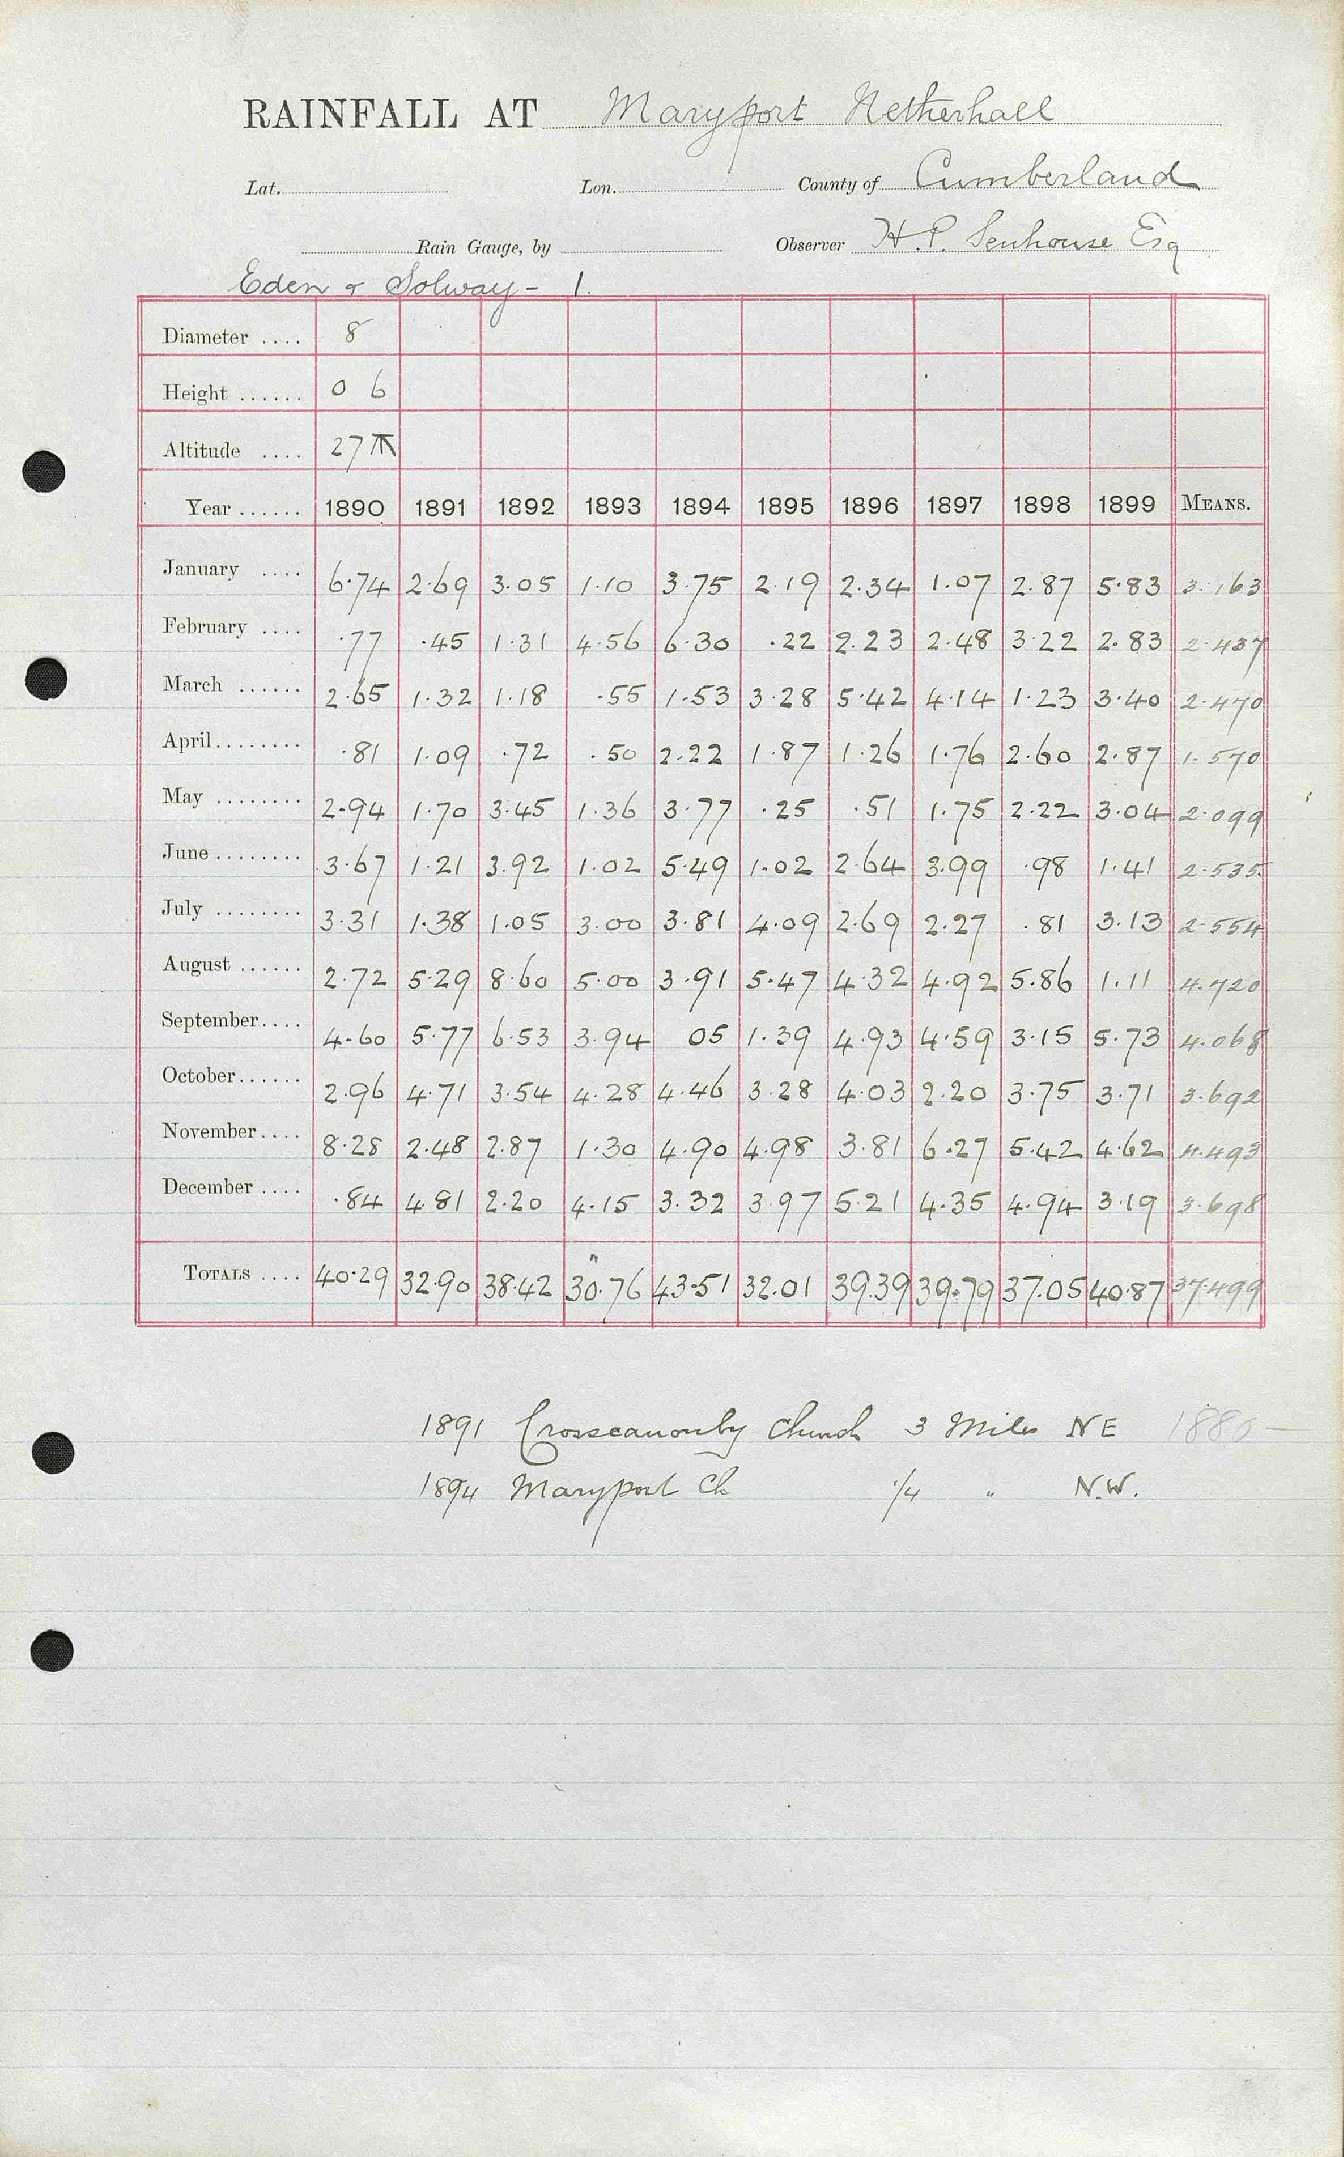 RAINFALL AT Maryport Netherhall
Lat. Lon. County of Cumberland
Rain Gauge, by Observer H. P. Senhouse Esq
Eden & Solway - 1.
Diameter .... 8
Height ...... 0 6
Altitude .... 27
Year ...... 1890 1891 1892 1893 1894 1895 1896 1897 1898 1899 MEANS.
January .... 6.74 2.69 3.05 1.10 3.75 2.19 2.34 1.07 2.87 5.83 3.163
February .... .77 .45 1.31 4.56 6.30 .22 2.23 2.48 3.22 2.83 2.437
March ...... 2.65 1.32 1.18 .55 1.53 3.28 5.42 4.14 1.23 3.40 2.470
April ........ .81 1.09 .72 .50 2.22 1.87 1.26 1.76 2.60 2.87 1.570
May ........ 2.94 1.70 3.45 1.36 3.77 .25 .51 1.75 2.22 3.04 2.099
June ........ 3.67 1.21 3.92 1.02 5.49 1.02 2.64 3.99 .98 1.41 2.535
July ........ 3.31 1.38 1.05 3.00 3.81 4.09 2.69 2.27 .81 3.13 2.554
August ...... 2.72 5.29 8.60 5.00 3.91 5.47 4.32 4.92 5.86 1.11 4.720
September .... 4.60 5.77 6.53 3.94 05 1.39 4.93 4.59 3.15 5.73 4.068
October ...... 2.96 4.71 3.54 4.28 4.46 3.28 4.03 2.20 3.75 3.71 3.692
November .... 8.28 2.48 2.87 1.30 4.90 4.98 3.81 6.27 5.42 4.62 4.493
December .... .84 4.81 2.20 4.15 3.32 3.97 5.21 4.35 4.94 3.19 3.698
TOTALS .... 40.29 32.90 38.42 30.76 43.51 32.01 39.39 39.79 37.05 40.87 37.499
1891 Crosscanonby Church 3 Miles NE 1880 -
1894 Maryport Ch 1/4 " N.W.